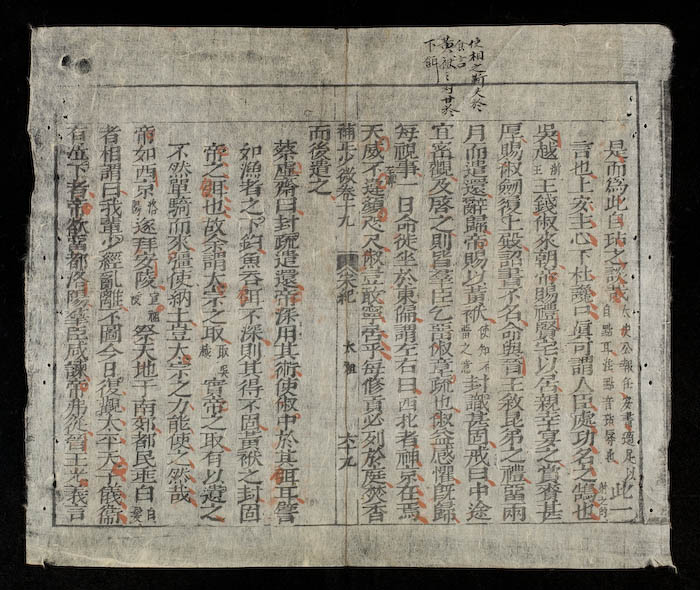 是而為此自玷之誤哉太史公報任安書適足以自點耳注點音玷辱也此二
言也上安主心下杜讒口眞可謂人臣處功名之鵠也
吳越王錢俶來朝帝賜禮賢宅以居親幸宴之賞賚甚
厚賜俶劒履上殿詔書不名命與晉王敘昆弟之禮留兩
月而遣還辭歸帝賜以黃袱使知不留之意封識甚固戒曰中途
宜密觀及啓之則皆羣臣乞留俶章疏也俶益感懼旣歸
每視事一日命徙坐於東偏謂左右曰西北者神京在焉
天威不違顔咫尺俶豈敢寧居乎每修貢必列於庭焚香
少微卷二十九 宋紀 太祖 六十九
而後遣之
蔡虛齋曰封疏遣還帝深用其術使俶中於其餌耳譬
如漁者之下鉤魚呑餌不深則其得不固黃袱之封固
帝之餌也故余謂太宗之取取吳越實帝之取有以遺之
不然單騎而來彊使納土豈太宗之力能使之然哉
帝如西京洛陽遂拜安陵宣祖陵祭天地于南郊都民垂白白髮
者相謂曰我輩少經亂離不圖今日復觀太平天子儀衛
有泣下者帝欲留都洛陽羣臣咸諫帝弗從晉王光義言